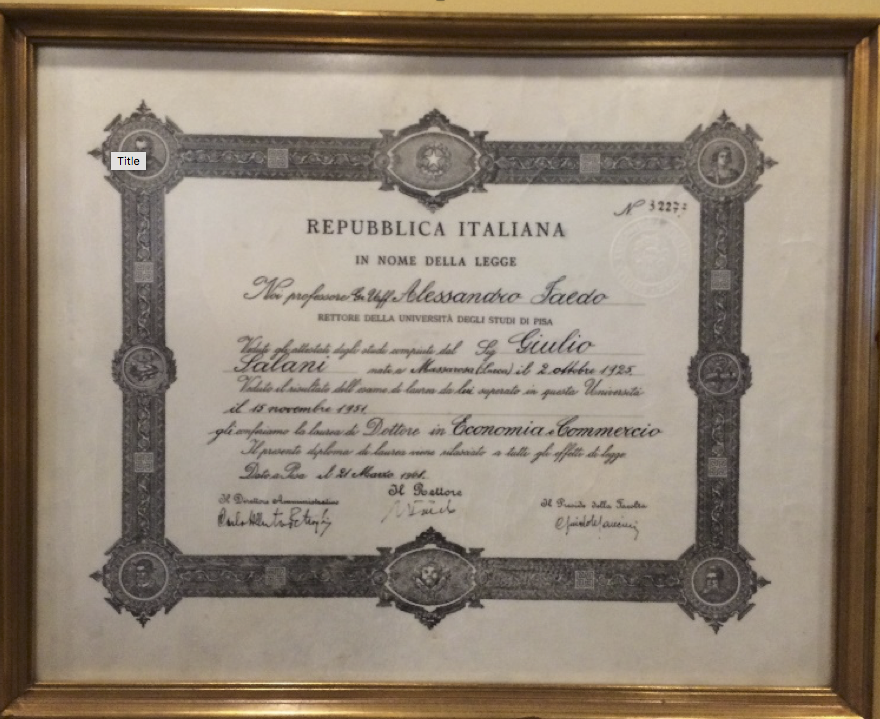 Title
N 3227
REPUBBLICA ITALIANA
IN NOME DELLA LEGGE
Noi professore Gr. Uff. Alessandro Faedo
RETTORE DELLA UNIVERSITÀ DEGLI STUDI DI PISA
Veduto gli attestati degli studi compiuti dal Sig Giulio
Salani nato a Massarosa (Lucca) il 2 ottobre 1925
Veduto il risultato dell'esame di laurea da lui superato in questa Università
il 15 novembre 1951
gli conferiamo la laurea di Dottore in Economia e Commercio
Il presente diploma di laurea viene rilasciato a tutti gli effetti di legge
Dato a Pisa il 21 Marzo 1961.
Il Direttore Amministrativo Il Rettore Il Preside della Facoltà